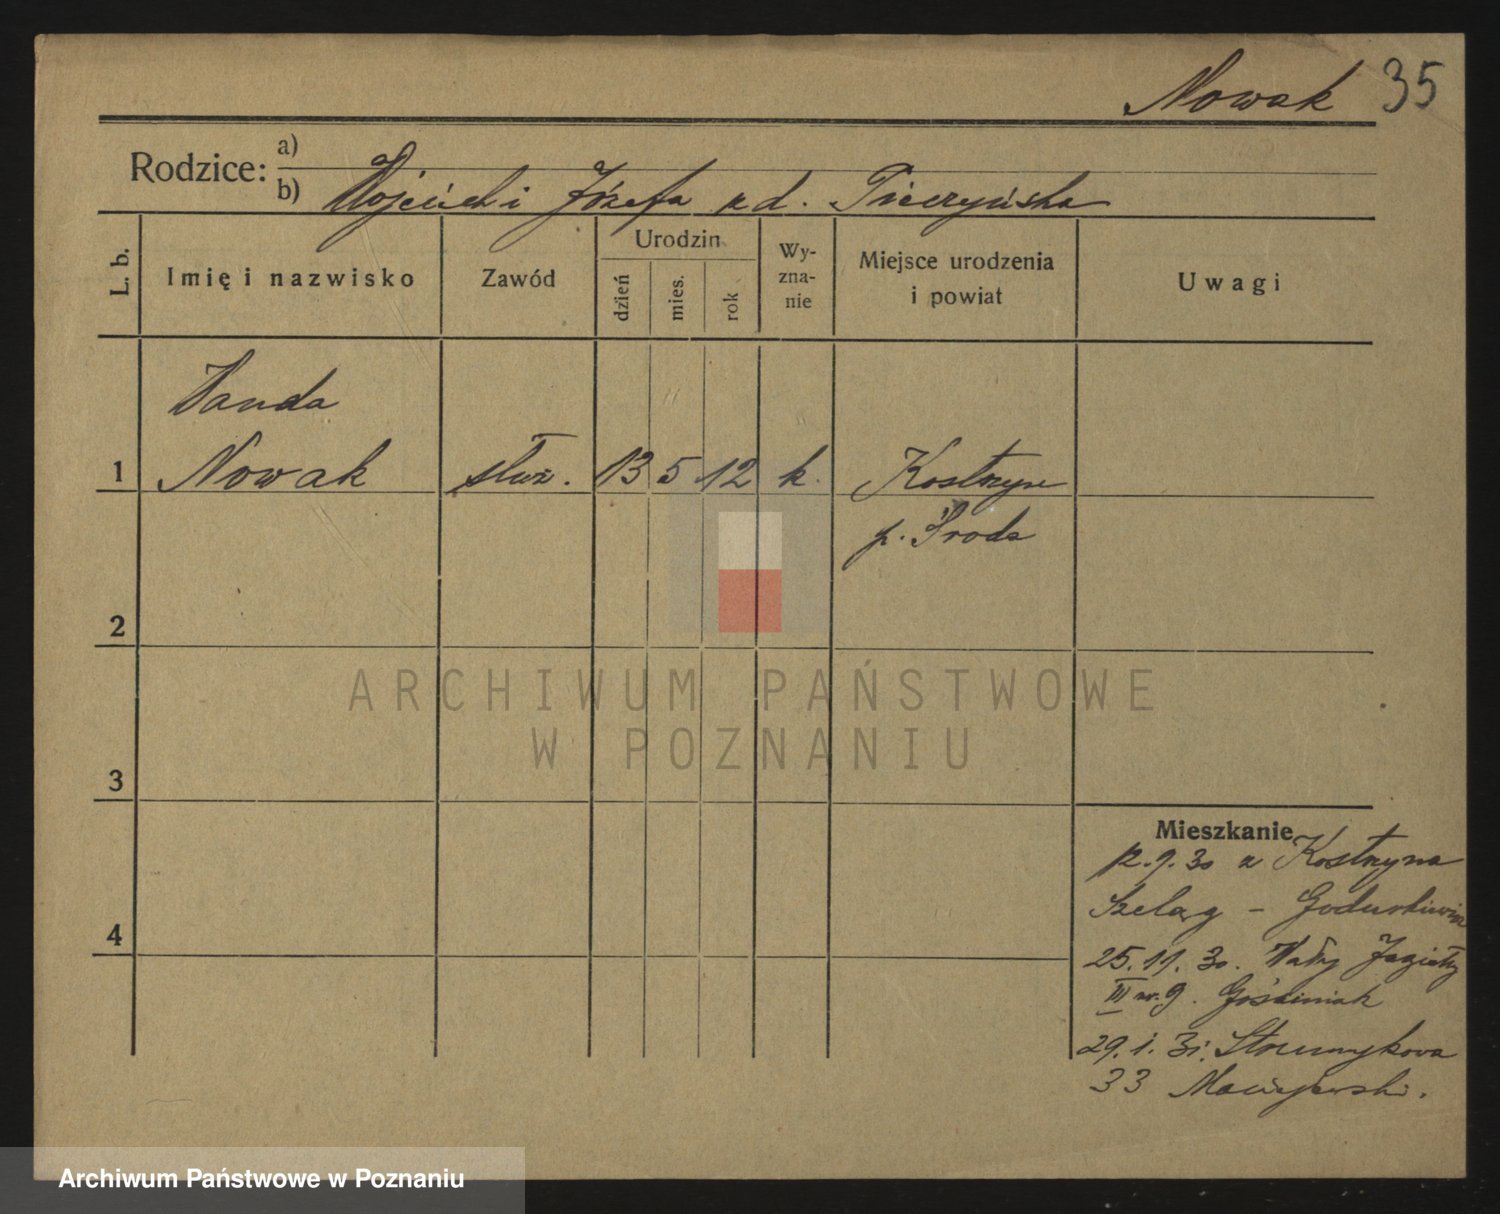 Nowak 35
Rodzice: a)
b) Wojciech i Józefa z d. Pieczyńska
L. b.
Imię i nazwisko
Zawód
Urodzin
dzień
mies.
rok
Wy-
zna-
nie
Miejsce urodzenia
i powiat
Uwagi
Wanda
1 Nowak służ. 13 5 12 k. Kostrzyn
p. Środa
2
ARCHIWUM PAŃSTWOWE
W POZNANIU
3
4
Mieszkanie
12.9.30 z Kostrzyna
Szeląg -
25.11.30. Wały Jagiełły
III nr. 9. Gościniak
29.1.31. Strumykowa
33 Maciejewski.
Archiwum Państwowe w Poznaniu